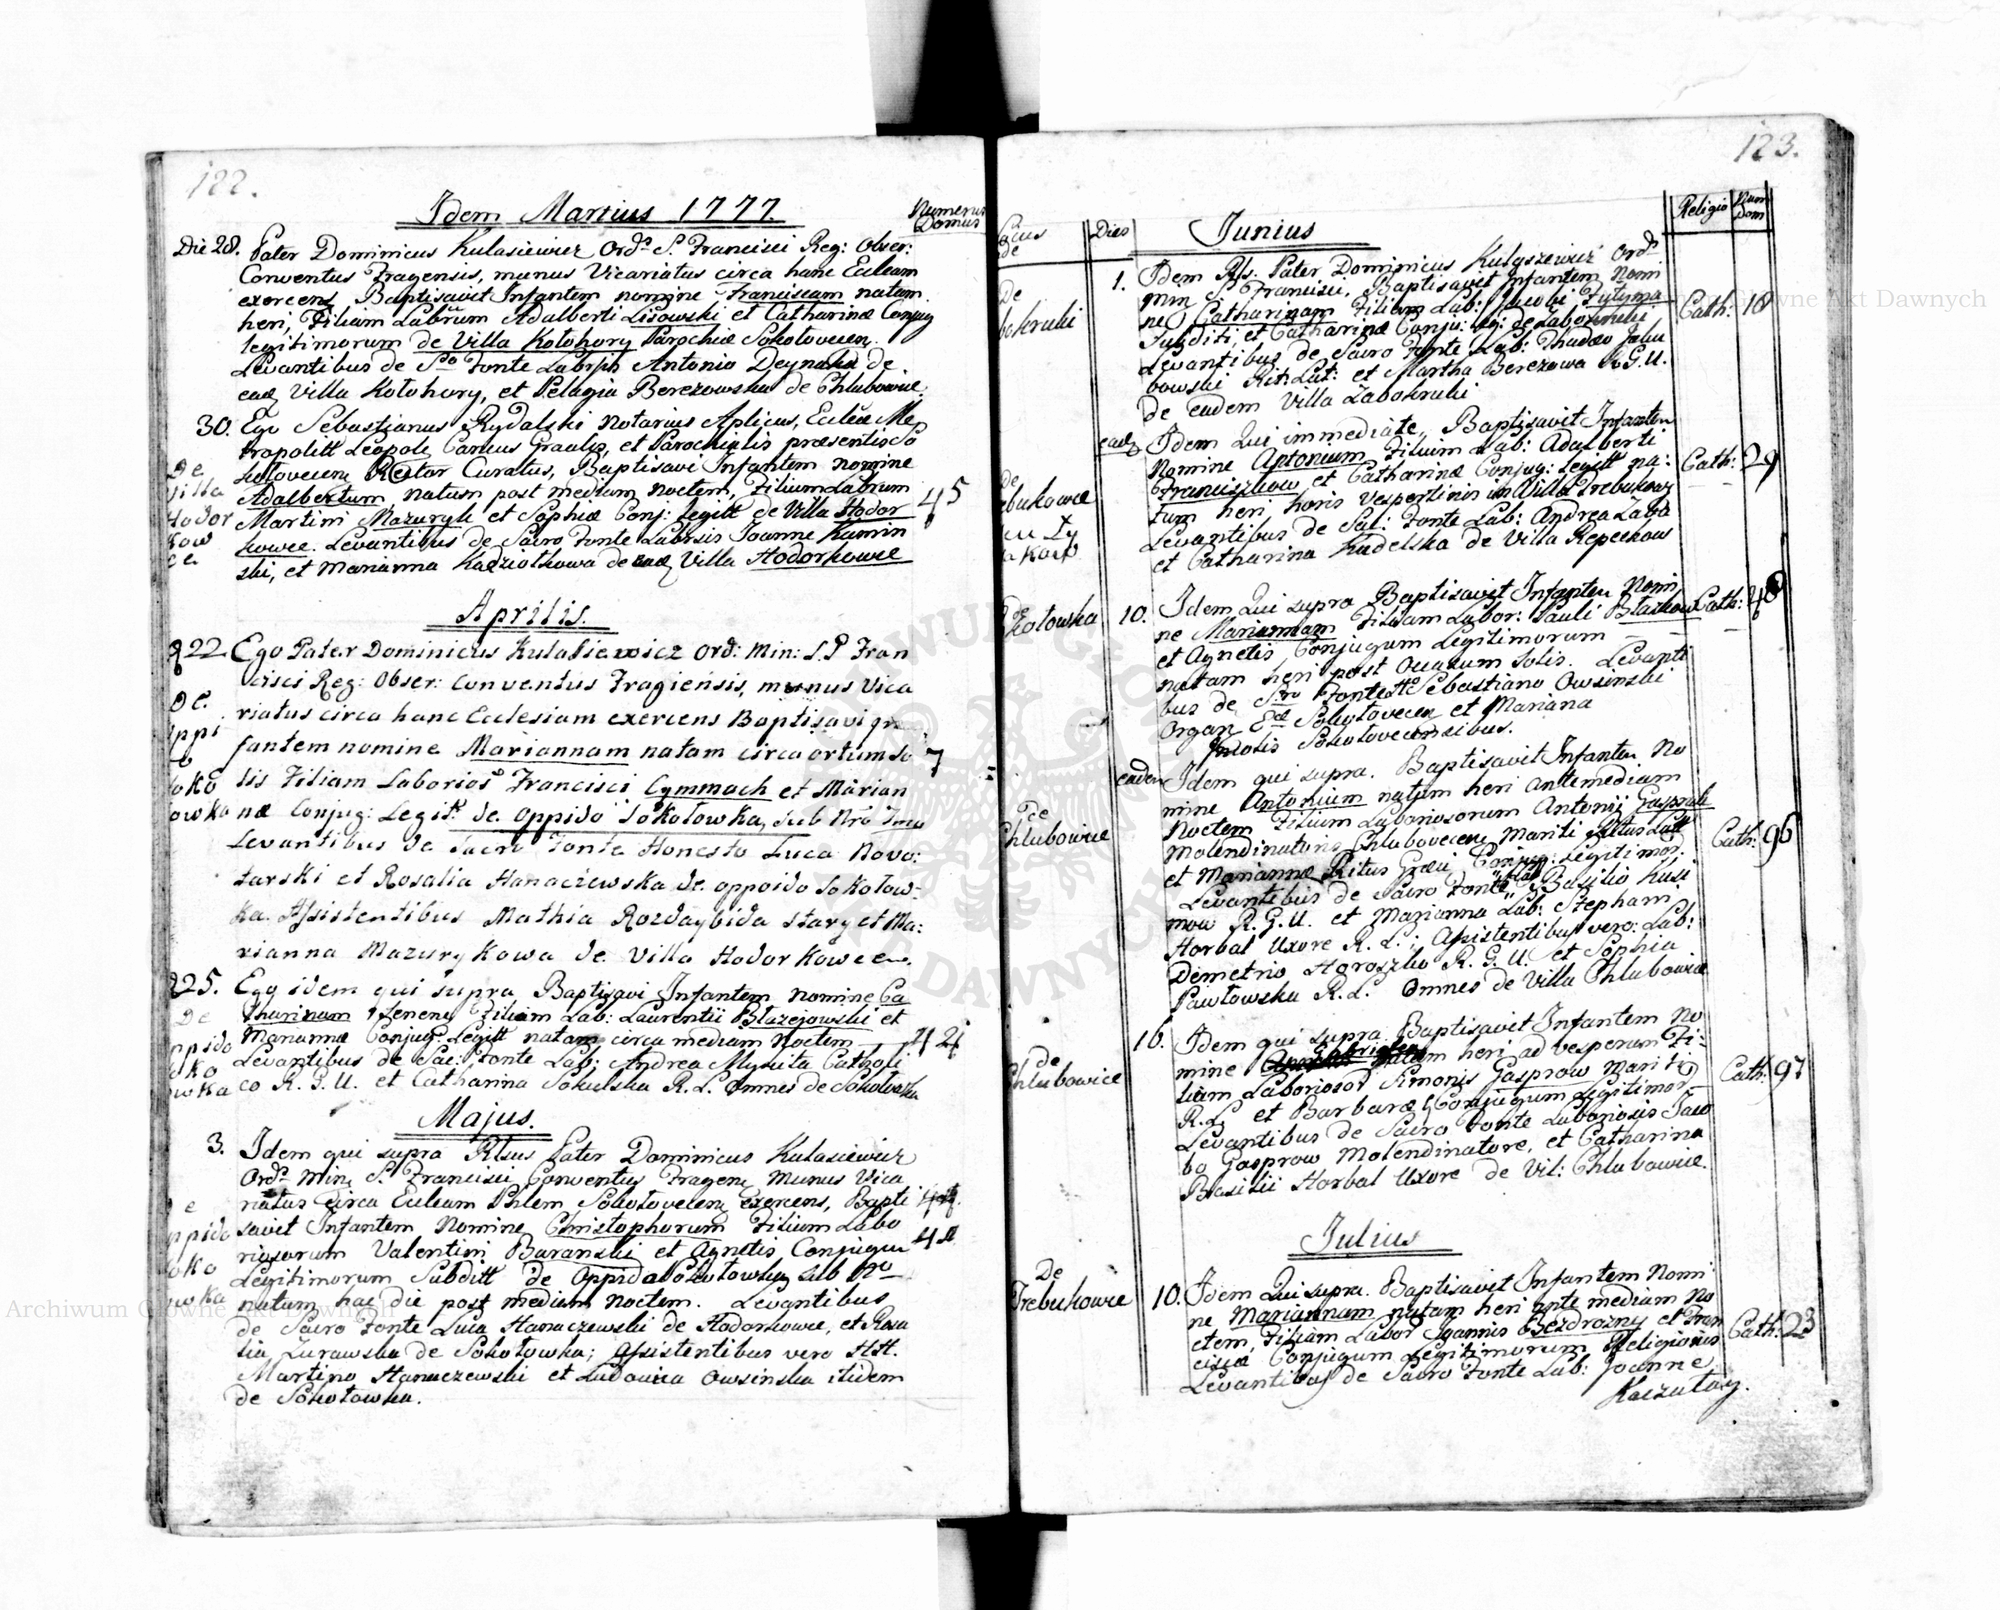 122.
Idem Martius 1777.
Numerus
Domus
Die 28. Pater Dominicus Kulasiewicz Ord: S. Francisci Reg: Obser:
Conventus Fragensis, munus Vicariatus circa hanc Eccleam
exercens Baptisavit Infantem nomine Franciscam natam
heri, Filiam Labrum Adalberti Lisowski et Catharinæ Conjug
legitimorum de Villa Kołohory Parochiæ Sokołovecen.
Levantibus de Sro Fonte Antonio Deynaka de
ead Villa Kołohory, et Pelagia Berezowska de Chlubowice.
30. Ego Sebastianus Rydalski Notarius Aplicus, Ecclæ Me
tropolitt Leopole et Parochialis præsentis So
kołovecen Curatus, Baptisavi Infantem nomine
Adalbertum natum post mediam noctem, Filium Labrum
Martini Mazuryk et Sophiæ Conj: Legitt de Villa Hodor
kowce. Levantibus de Sacro Fonte Joanne Kamin
ski, et Marianna Kadziołkowa de ead Villa Hodorkowce
De
Villa
Hodor
kow
ce.
45
Aprilis.
22. Ego Pater Dominicus Kulasiewicz Ord: Min: S. P Fran
cisci Reg: Obser: Conventus Fragiensis, munus Vica
riatus circa hanc Ecclesiam exercens Baptisavi In
fantem nomine Mariannam natam circa ortum So
lis Filiam Francisci Cymmach et Marian
næ Conjug: Legit: de oppido Sokołowka, sub Nro
Levantibus de Sacro Fonte Honesto Luca Novo:
tarski et Rosalia Hanaczewska de oppoido Sokołow-
ka. Assistentibus Mathia Rozdaybida Stary et Ma:
rianna Mazurykowa de Villa Hodorkowce.
De
oppi
do
soko
lowka
7
25. Ego idem qui supra Baptisavi Infantem nomine Ca
tharinam Filiam Lab: Laurentii Błazejowski et
Mariannæ Conjug: Legitt natam circa mediam Noctem
Levantibus de Sac: Fonte Lab: Andrea Mykita Catholi
co R. G. U. et Catharina Sokulska R. L. Omnes de Sokołowka
De
oppido
soko
lowka
44
Majus.
3. Idem qui supra Rlsus Pater Dominicus Kulasiewicz
Ord: Min: S. Francisci Conventus Fragen Munus Vica
riatus Circa Eccleam Phlem Sokołovecen Exercens, Bapti
savit Infantem Nomine Christophorum Filium Labo
riosorum Valentini Baranski et Agnetis Conjugum
Legitimorum Subditt de Oppido Sokołowka sub Nro
natum hac die post mediam noctem. Levantibus
de Sacro Fonte Luca Hanaczewski de Hodorkowce, et Rosa
lia Zurawska de Sokołowka; Assistentibus vero HH.
Martino Hanaczewski et Ludovica Owsinska itidem
de Sokołowka.
De
oppido
soko
lowka
44
123.
Locus
de
Dies
Junius
Religio
Num
Dom
1. Idem Rls. Pater Dominicus Kulyszewicz Ord:
Min S. Francisci, Baptisavit Infantem Nomi
ne Catharinam Filiam Lab: Jacobi Futyma
Subditi, et Catharinæ Conju: Leg: de Łabokruki
Levantibus de Sacro Fonte Lab: Thadæo Jaku
bowski Rit: Lat: et Martha Berezowa R. G. U.
de eadem Villa Łabokruki
Cath: 10
ead Idem Qui immediate, Baptisavit Infantem
Nomine Antonium Filium Lab: Adalberti
Franciszkow et Catharinæ Conjug: Legitt na:
tum heri horis Vespertinis in Villa Trebukowce
Levantibus de Sac: Fonte Lab: Andrea
et Catharina Kudelska de Villa Repechow
Cath: 29
De
Sokołowka
10. Idem Qui supra Baptisavit Infantem Nomi
ne Mariannam Filiam Labor: Pauli Błazkow
et Agnetis Conjugum Legitimorum
natam heri post Occasum Solis. Levanti
bus de Sro Fonte Sebastiano Owsinski
Organ Ecl Sokołovecen et Mariana
Sokołovecensibus.
Cath:
De
Chlubowice
eadem Idem qui supra. Baptisavit Infantem No
mine Antonium natum heri ante mediam
Noctem Filium Laboriosorum Antonii Gasprak
Molendinatoris Chlubovecen, Mariti Ritus Latt
et Mariannæ Ritus Græci Conjug: Legitimor:
Levantibus de Sacro Fonte Lab: Basilio Kusi
mow R. G. U. et Marianna Lab: Stephani
Horbal Uxore R. L.; Assistentibus vero: Lab:
Demetrio Horoszko R. G. U. et Sophia
Pawłowska R. L. Omnes de Villa Chlubowice
Cath: 96
de
Chlubowice
16. Idem qui supra, Baptisavit Infantem No
mine Gabrielem natum heri ad vesperam Fi:
lium Laboriosor Simonis Gasprow Mariti
R. L. et Barbaræ Conjugum Legitimor:
Levantibus de Sacro Fonte Laboriosis Jaco
bo Gasprow Molendinatore, et Catharina
Basilii Horbal Uxore de Vil: Chlubowice.
Cath: 97
Julius
De
Trebukowce
10. Idem Qui supra. Baptisavit Infantem Nomi
ne Mariannam natam heri ante mediam No
ctem, Filiam Labor Joannis Bezdrozny et Fran
ciscæ Conjugum Legitimorum Religionis
Levantibus de Sacro Fonte Lab: Joanne
Kaczałay.
Cath: 23
Archiwum Główne Akt Dawnych
Archiwum Główne Akt Dawnych
ARCHIWUM GŁÓWNE AKT DAWNYCH